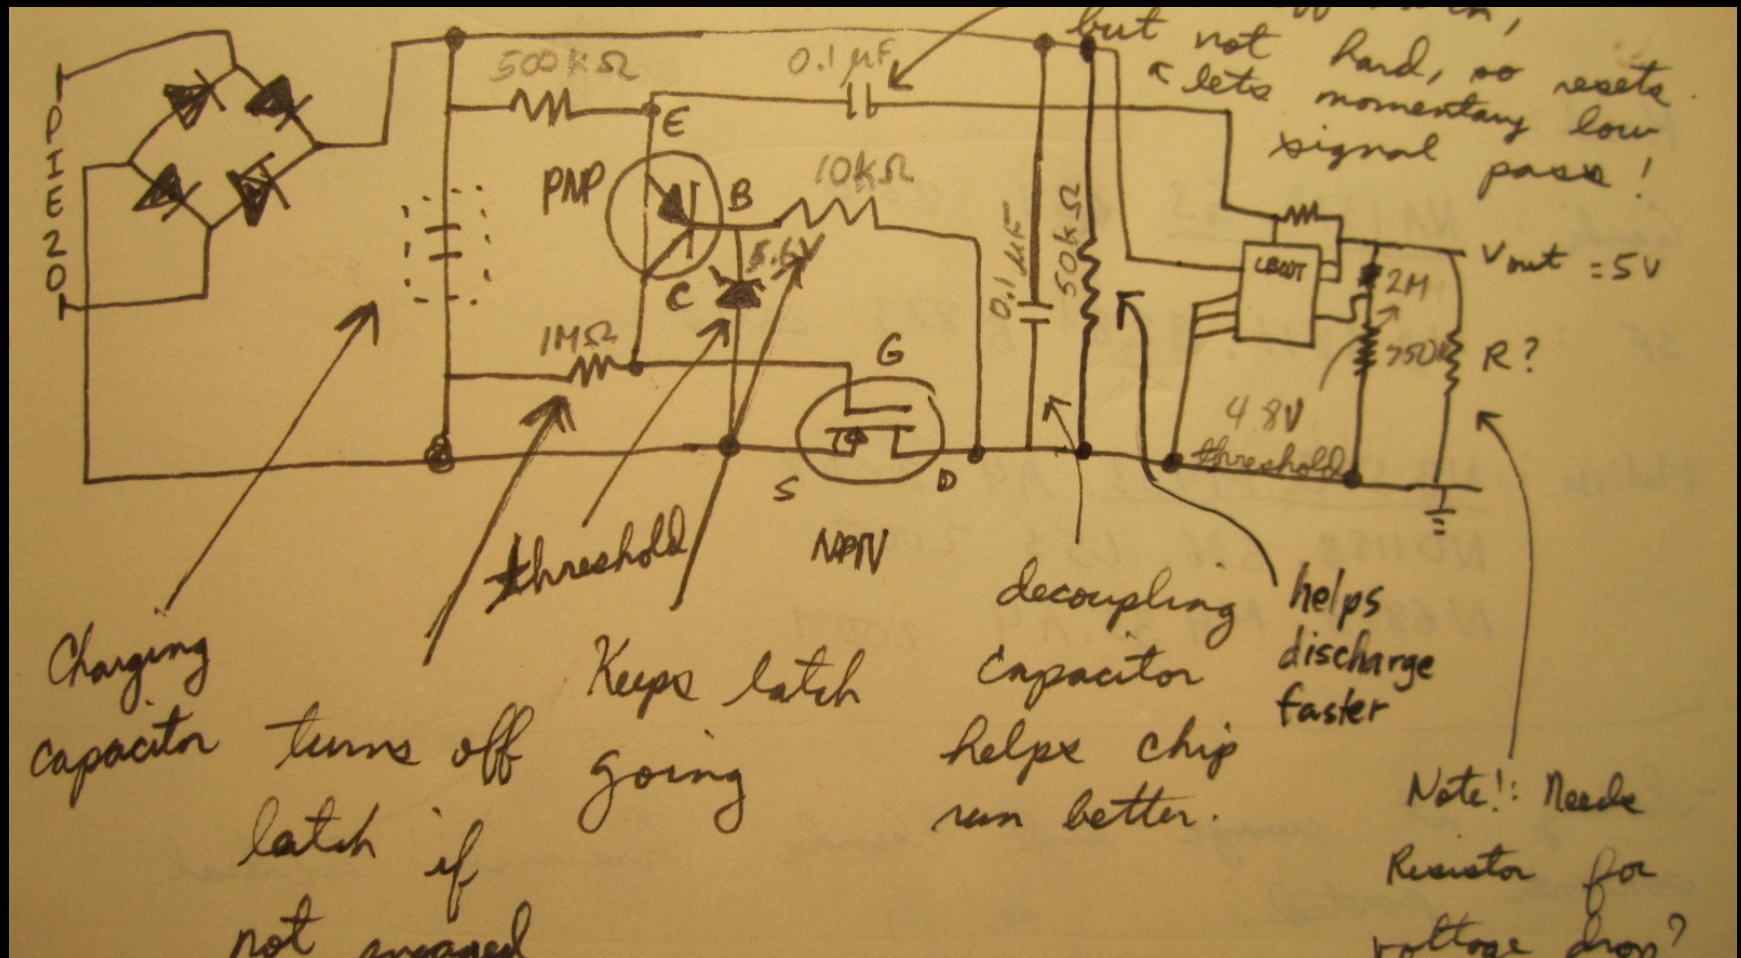 but not hard, so resets
lets momentary low
signal pass!
PIEZO
500kΩ
0.1 µF
E
PNP
B
10kΩ
5.6V
C
1MΩ
G
S
D
0.1 µF
50kΩ
Vout = 5V
2M
R?
4.8V
threshold
threshold
Charging
capacitor
turns off
latch if
not engaged
Keeps latch
going
decoupling
capacitor
helps chip
run better.
helps
discharge
faster
Note!: Needs
Resistor for
voltage drop?